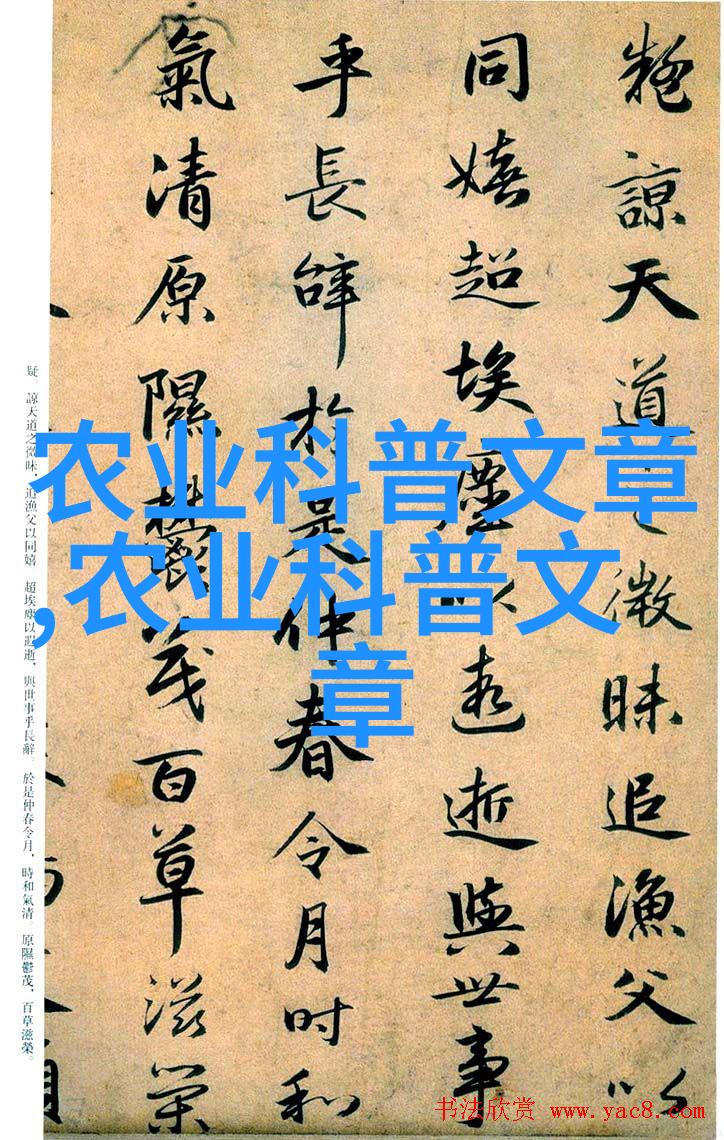 疑諒天道之微昧追漁父以
同嬉超埃塵以遐逝與世事
乎長辭於是仲春令月時和
氣清原隰鬱茂百草滋榮
疑。諒天道之微昧，追漁父以同嬉 超埃塵以遐逝，與世事乎長辭。於是仲春令月，時和氣清。原隰鬱茂，百草滋榮。
农业科普文章
,农业科普文
章
书法欣赏 www.yac8.com